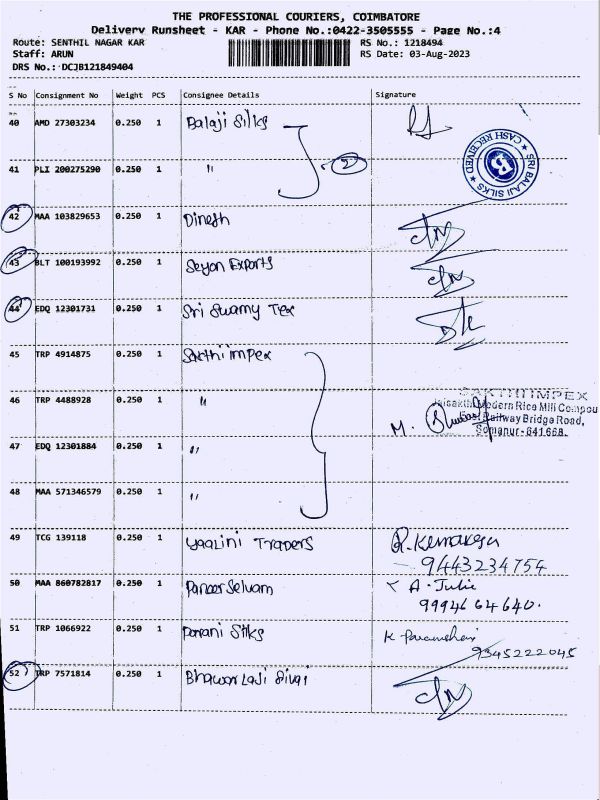 THE PROFESSIONAL COURIERS, COIMBATORE
Delivery Runsheet - KAR - Phone No.:0422-3505555 - Page No.:4
Route: SENTHIL NAGAR KAR
RS No.: 1218494
Staff: ARUN
RS Date: 03-Aug-2023
DRS No.: DCJB121849404
S No Consignment No Weight PCS Consignee Details Signature
40 AMD 27303234 0.250 1 Balaji Silks
SRI BALAJI SILKS ★ CASH RECEIVED ★ B
41 PLI 200275290 0.250 1 " 2
42 MAA 103829653 0.250 1 Dinesh
43 BLT 100193992 0.250 1 Seyon Exports
44 EDQ 12301731 0.250 1 Sri Swamy Tex
45 TRP 4914875 0.250 1 Sakthi impex
46 TRP 4488928 0.250 1 " M.
SAKTHI IMPEX
Jaisakthi Modern Rice Mill Compou
Railway Bridge Road,
Somanur - 641668.
47 EDQ 12301884 0.250 1 "
48 MAA 571346579 0.250 1 "
49 TCG 139118 0.250 1 Yaalini Traders
9443234754
50 MAA 860782817 0.250 1 Paneer Selvam A. Julie
9994664640.
51 TRP 1066922 0.250 1 Parani Silks
9345222045
52 TRP 7571814 0.250 1